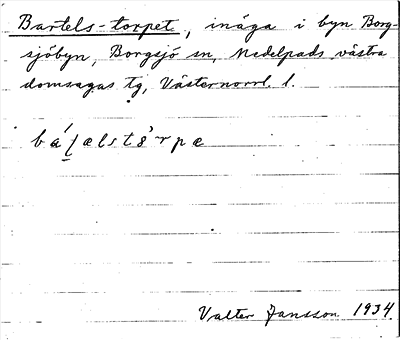 Bartels-torpet, inäga i byn Borg-
sjöbyn, Borgsjö sn, Medelpads västra
domsagas tg, Västernorrl. l.
Valter Jansson 1934